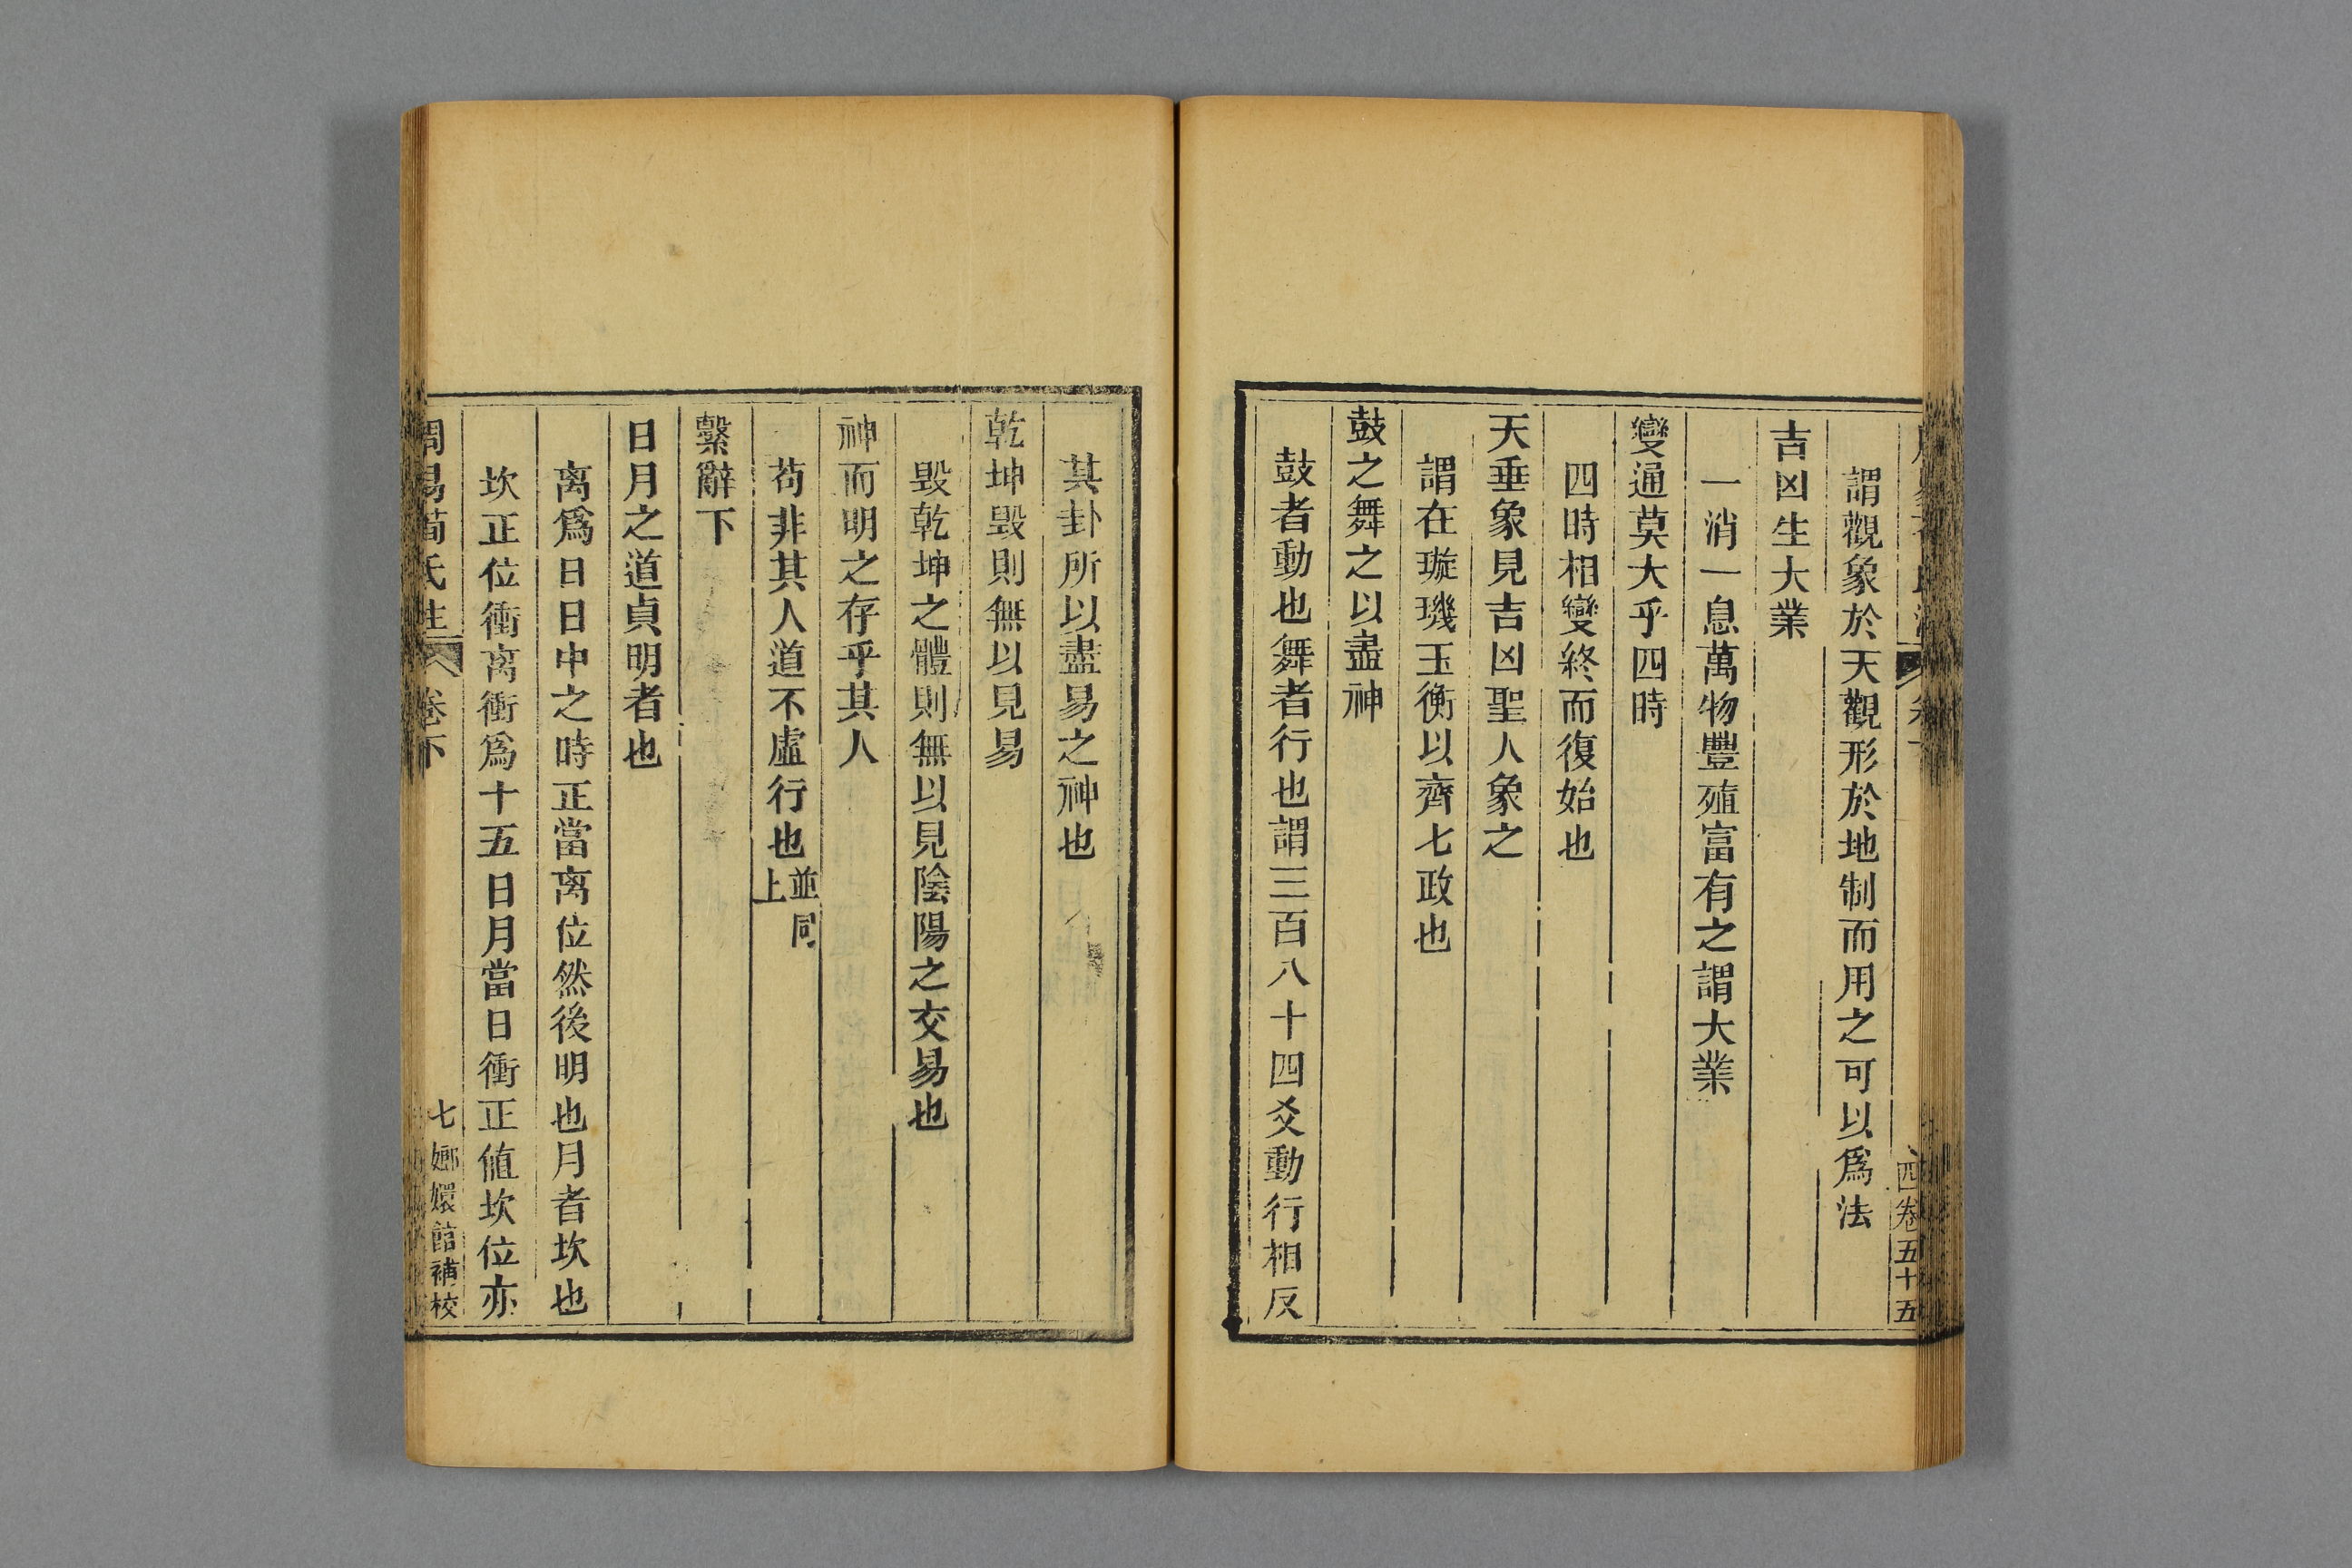 四卷五十五
謂觀象於天觀形於地制而用之可以爲法
吉凶生大業
一消一息萬物豐殖富有之謂大業
變通莫大乎四時
四時相變終而復始也
天垂象見吉凶聖人象之
謂在璇璣玉衡以齊七政也
鼓之舞之以盡神
鼓者動也舞者行也謂三百八十四爻動行相反
其卦所以盡易之神也
乾坤毀則無以見易
毀乾坤之體則無以見陰陽之交易也
神而明之存乎其人
苟非其人道不虛行也並同上
繫辭下
日月之道貞明者也
离爲日日中之時正當离位然後明也月者坎也
坎正位衝离衝爲十五日月當日衝正値坎位亦
周易荀氏注 卷下 七 嫏嬛館補校